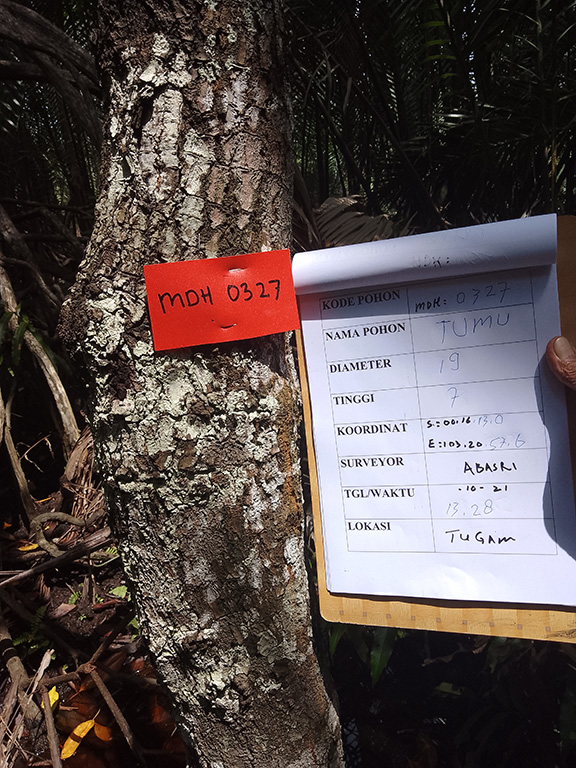 MDH 0327
MDH:
KODE POHON MDH: 0327
NAMA POHON TUMU
DIAMETER 19
TINGGI 7
KOORDINAT S:=00.16.13.0
E:103.20.57.6
SURVEYOR ABASRI
TGL/WAKTU -10-21
13.28
LOKASI TUGAM